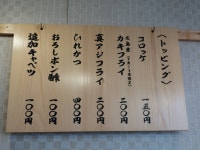 〈トッピング〉
コロッケ 一五〇円
カキフライ 二〇〇円
真アジフライ 二〇〇円
ひれかつ 四〇〇円
おろしポン酢 一〇〇円
追加キャベツ 一〇〇円